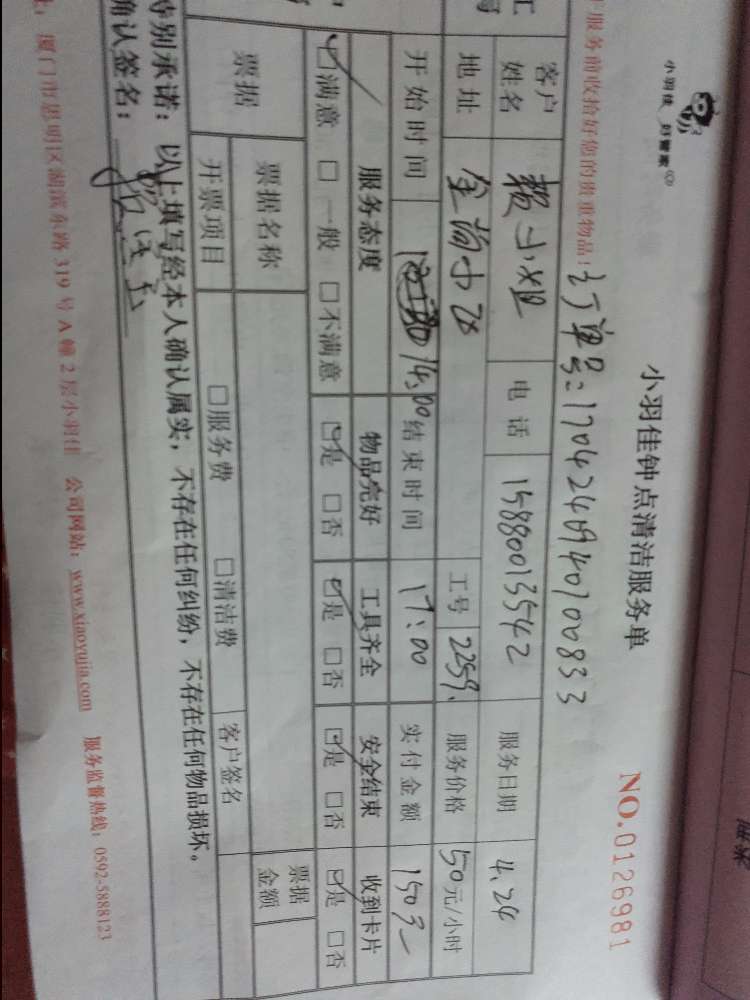 小羽佳 好管家
小羽佳钟点清洁服务单
NO.0126981
服务前收拾好您的贵重物品!
订单号:1704240940700833
客户姓名 赖小姐 电话 15880013542 服务日期 4.24
地址 金尚小区 工号 2259. 服务价格 50元/小时
开始时间 14:00 结束时间 17:00 实付金额 150元
服务态度 物品完好 工具齐全 安全结束 收到卡片
☑满意 □一般 □不满意 ☑是 □否 ☑是 □否 ☑是 □否 ☑是 □否
票据 票据名称 票据金额
开票项目 □服务费 □清洁费 客户签名
特别承诺:以上填写经本人确认属实,不存在任何纠纷,不存在任何物品损坏。
确认签名:
厦门市思明区湖滨东路319号A幢2层小羽佳 公司网站:www.xiaoyujia.com 服务监督热线:0592-5888123